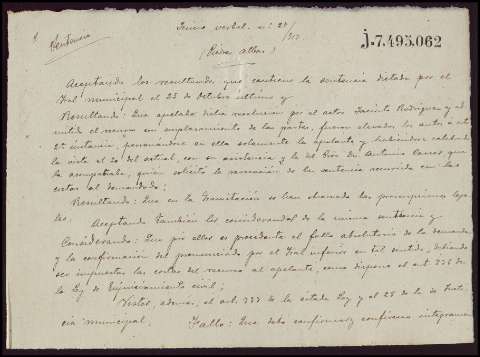 Sentencia
Juicio verbal n.º 27/913
j-7.495.062
(Piera alta)
Aceptando los resultandos que contiene la sentencia dictada por el
Tral municipal el 25 de Octubre último y
Resultando: Que apelada dicha resolución por el actor Jacinto Rodríguez y ad-
mitido el recurso con emplazamiento de las partes, fueron elevados los autos a esta
2ª instancia, personándose en ella solamente la apelante y habiéndose celebrado
la vista el 20 del actual, con su asistencia y la del Pror Dn Antonio que
la acompañaba, quien solicitó la revocación de la sentencia recurrida con las
costas al demandado;
Resultando: Que en la tramitación se han observado las prescripciones lega-
les,
Aceptando también los considerandos de la misma sentencia y
Considerando: Que por ellos es procedente el fallo absolutorio de la demanda
y la confirmación del pronunciado por el Tral inferior en tal sentido, debiendo
ser impuestas las costas del recurso al apelante, como dispone el art. 736 de
la Ley de Enjuiciamiento civil;
Vistos, además, el art. 733 de la citada Ley y el 25 de la de Justi-
cia municipal, Fallo: Que debo confirmar y confirmo íntegramen